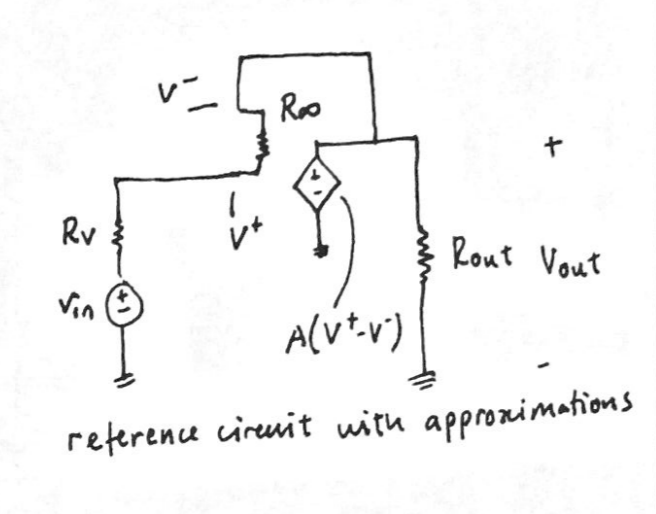 V⁻
R∞
+
Rv
V⁺
+
-
Rout
Vout
Vin
+
-
A(V⁺-V⁻)
-
reference circuit with approximations